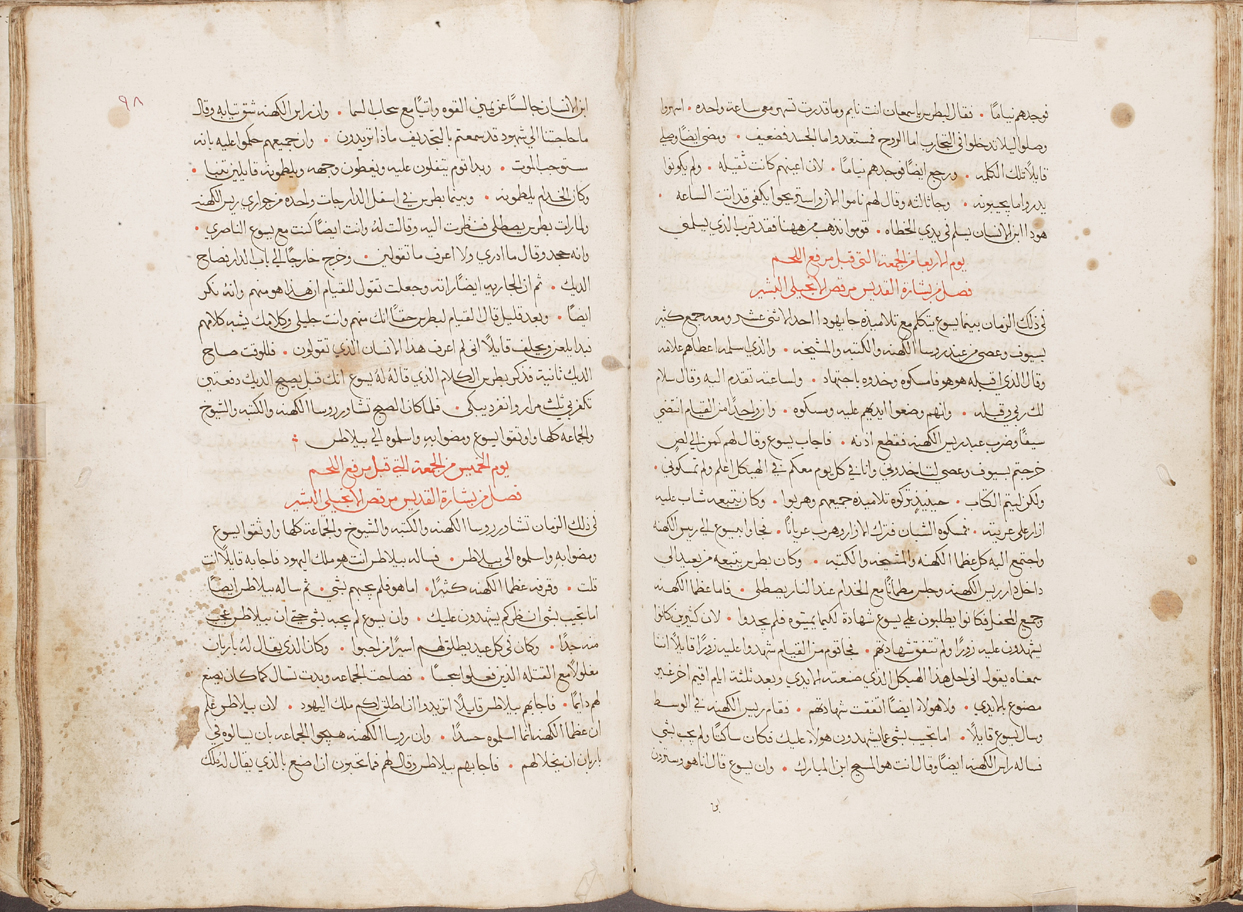 فوجدهم نيامًا • فقال لبطرس ياسمعان انت نايم وما قدرت تسهر معي ساعة واحده • اسهروا
وصلوا ليلا تدخلوا في التجارب اما الروح فمستعد واما الجسد فضعيف • ومضى ايضًا وصلى
قايلاً تلك الكلمه • ورجع ايضًا فوجدهم نيامًا • لان اعينهم كانت ثقيله • ولم يكونوا
يدروا ما يجيبونه • وجا ثالثه وقال لهم ناموا الان واستريحوا يكفي قد اتت الساعه •
هوذا ابن الانسان يسلم في يدي الخطاه • قوموا نذهب من ههنا فقد قرب الذي يسلمني
يوم الاربعا من الجمعة التي قبل مرفع اللحم
فصل من بشارة القديس مرقص الانجيلي البشير
في ذلك الزمان بينما يسوع يتكلم مع تلاميذه جا يهوذا احد الاثني عشر ومعه جمع كثير
بسيوف وعصي من عند روسا الكهنه والكتبه والمشيخه • والذي اسلمه اعطاهم علامه
وقال الذي اقبله هو هو فامسكوه وخدوه باجتهاد • ولساعته تقدم اليه وقال سلام
لك ربي وقبله • وانهم وضعوا ايديهم عليه ومسكوه • وان واحدًا من القيام انتضى
سيفًا وضرب عبد ريس الكهنه فقطع اذنه • فاجاب يسوع وقال لهم كمن الى لص
خرجتم بسيوف وعصي لتاخدوني وانا في كل يوم معكم في الهيكل اعلم ولم تمسكوني •
ولكن ليتم الكتاب • حينيذٍ تركوه تلاميذه جميعهم وهربوا • وكان يتبعه شاب عليه
ازار على عريته • فمسكوه الشبان فترك الازار وهرب عريانًا • فجاوا بيسوع الى ريس الكهنه
واجتمع اليه كل عظما الكهنه والمشيخه والكتبه • وكان بطرس يتبعه من بعيد الى
داخل دار ريس الكهنه وجلس مع الخدام عند النار يصطلي • فاما عظما الكهنه
وجمع المحفل فكانوا يطلبون على يسوع شهادة لكيما يميتوه فلم يجدوا • لان كثيرين كانوا
يشهدون عليه زورًا ولم تتفق شهادتهم • فجا قوم من القيام شهدوا عليه زورًا قايلاً اننا
سمعناه يقول اني احل هذا الهيكل الذي صنعته الايدي وبعد ثلثة ايام اقيم اخر غير
مصنوع بالايدي • ولا هولا ايضًا اتفقت شهادتهم • فقام ريس الكهنه في الوسط
وسال يسوع قايلاً • اما تجيب بشي عما يشهدون هولاء عليك فكان ساكتًا ولم يجب بشي
فساله راس الكهنه ايضًا وقال انت هو المسيح ابن المبارك • وان يسوع قال انا هو وسترون
٩٨
ابن الانسان جالسًا عن يمين القوه واتيًا مع سحاب السما • وان راس الكهنه شق ثيابه وقال
ما حاجتنا الى شهود قد سمعتم بالتجديف ماذا تريدون • وان جميعهم حكموا عليه بانه
مستوجب الموت • وبدا قوم يتفلون عليه ويغطون وجهه ويلطمونه قايلين تنبيا •
وكان الخدام يلطمونه • وبينما بطرس في اسفل الدار جات وحده من جواري ريس الكهنه
ولما رات بطرس يصطلي فنظرت اليه وقالت له وانت ايضًا كنت مع يسوع الناصري •
وانه جحد وقال ما ادري ولا اعرف ما تقولين • وخرج خارجًا الى باب الدار فصاح
الديك • ثم ان الجاريه ايضًا راته وجعلت تقول للقيام ان هذا هو منهم وانه نكر
ايضًا • وبعد قليل قال القيام لبطرس حقًا انك منهم وانت جليلي وكلامك يشبه كلامهم
فبدا يلعن ويحلف قايلاً اني لم اعرف هذا الانسان الذي تقولون • فللوقت صاح
الديك ثانية فذكر بطرس الكلام الذي قاله له يسوع انك قبل يصيح الديك دفعتين
تكفر بي تلث مرار وانفرد يبكي • فلما كان الصبح تشاور روسا الكهنه والكتبه والشيوخ
والجماعه كلها واوثقوا يسوع ومضوا به واسلموه الى بيلاطس •
يوم الخميس من الجمعة التي قبل مرفع اللحم
فصل من بشارة القديس مرقص الانجيلي البشير
في ذلك الزمان تشاور روسا الكهنه والكتبه والشيوخ والجماعة كلها واوثقوا يسوع
ومضوا به واسلموه الى بيلاطس • فساله بيلاطس انت هو ملك اليهود فاجابه قايلاً انت
قلت • وقرفه عظما الكهنه كثيرًا • اما هو فلم يجبهم بشي • ثم ساله بيلاطس ايضًا
اما تجيب بشي انظر كم يشهدون عليك • وان يسوع لم يجبه بشي حتى ان بيلاطس عجب
منه جدًا • وكان في كل عيد يطلق لهم اسيرًا من احبوا • وكان الذي يقال له باربان
مغلولاً مع القتله الذين فعلوا • فصاحت الجماعه وبدت تسال كما كان يصنع
لهم دايمًا • فاجابهم بيلاطس قايلاً اتريدوا ان اطلق لكم ملك اليهود • لان بيلاطس علم
ان عظما الكهنه انما اسلموه حسدًا • وان روسا الكهنه هيجوا الجماعه بان يسالوه في
باربان ان يخلا لهم • فاجابهم بيلاطس وقال لهم فما تحبون ان اصنع بالذي يقال له ملك